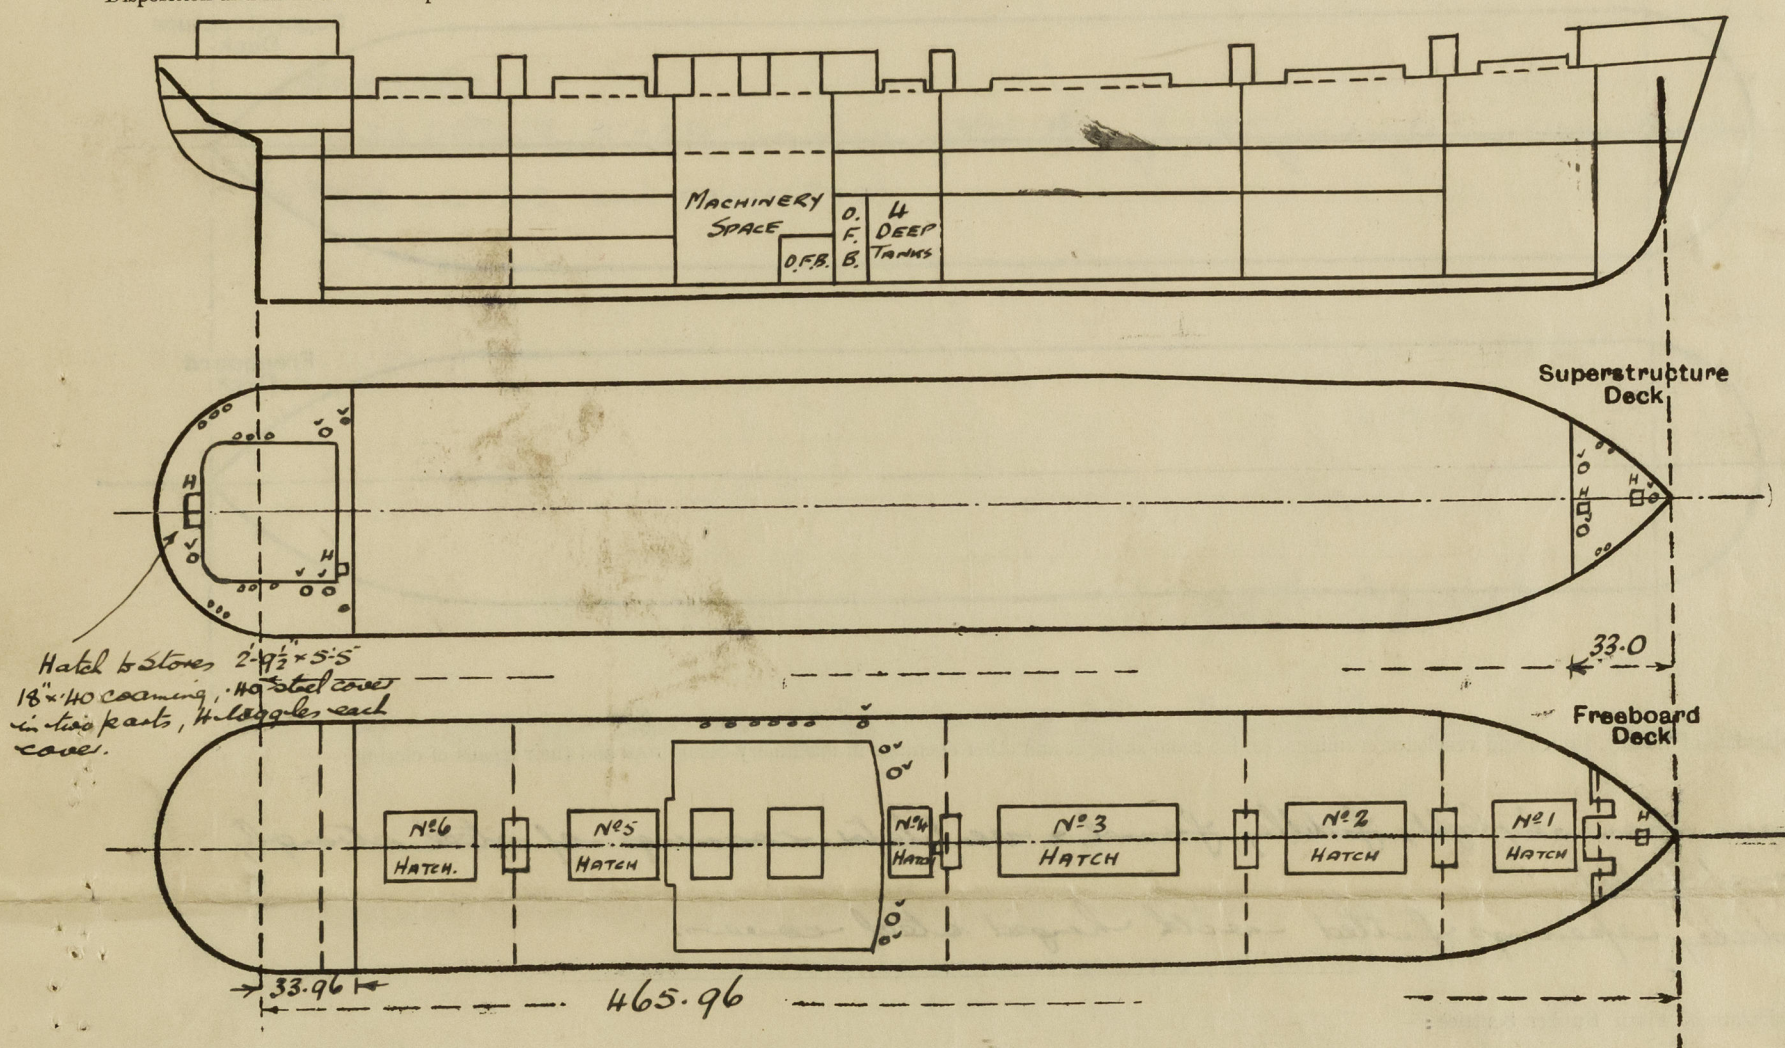 MACHINERY
SPACE
O.F.B.
O.
F.
B.
4
DEEP
TANKS
Superstructure
Deck
H
H
H
H
33.0
Hatch to Stores 2'-9½" x 5'-5"
18" x .40 coaming, .40 steel cover
in two parts, 4 toggles each
cover.
Freeboard
Deck
Nº6
HATCH.
Nº5
HATCH
Nº4
HATCH
Nº3
HATCH
Nº2
HATCH
Nº1
HATCH
H
33.96
465.96